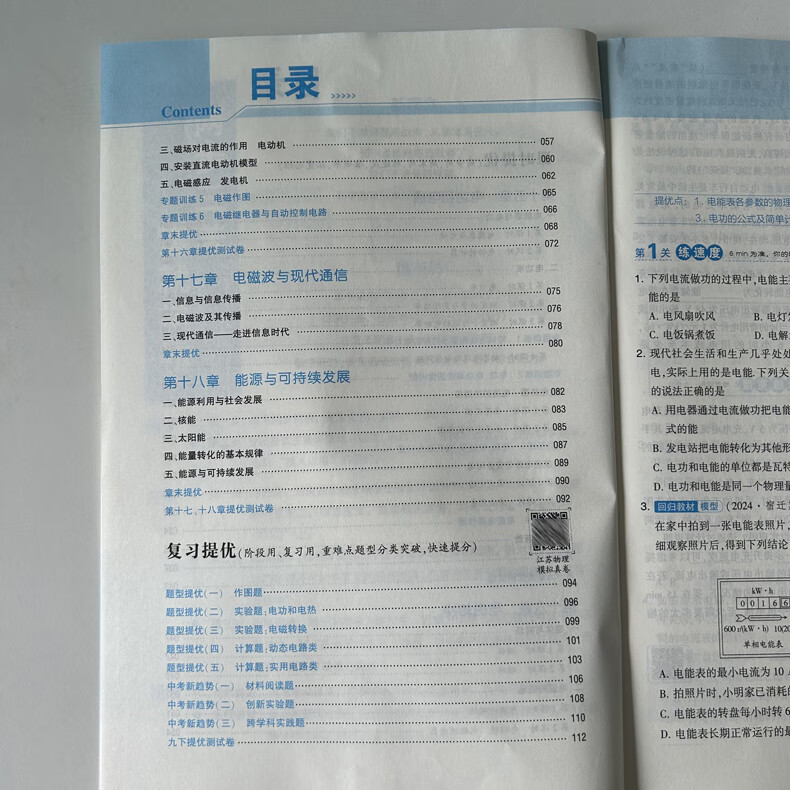 目录 >>>>>
Contents
三、磁场对电流的作用 电动机 057
四、安装直流电动机模型 060
五、电磁感应 发电机 062
专题训练5 电磁作图 065
专题训练6 电磁继电器与自动控制电路 066
章末提优 068
第十六章提优测试卷 072
第十七章 电磁波与现代通信
一、信息与信息传播 075
二、电磁波及其传播 076
三、现代通信——走进信息时代 078
章末提优 080
第十八章 能源与可持续发展
一、能源利用与社会发展 082
二、核能 083
三、太阳能 085
四、能量转化的基本规律 087
五、能源与可持续发展 089
章末提优 090
第十七、十八章提优测试卷 092
复习提优(阶段用、复习用,重难点题型分类突破,快速提分)
江苏物理
模拟真卷
题型提优(一) 作图题 094
题型提优(二) 实验题:电功和电热 096
题型提优(三) 实验题:电磁转换 099
题型提优(四) 计算题:动态电路类 101
题型提优(五) 计算题:实用电路类 103
中考新趋势(一) 材料阅读题 106
中考新趋势(二) 创新实验题 108
中考新趋势(三) 跨学科实践题 110
九下提优测试卷 112
提优点:1. 电能表各参数的物理
3. 电功的公式及简单计
第1关 练速度 6 min为准,你的
1. 下列电流做功的过程中,电能主
能的是
A. 电风扇吹风 B. 电灯
C. 电饭锅煮饭 D. 电解
2. 现代社会生活和生产几乎处处
电,实际上用的是电能.下列关
的说法正确的是
A. 用电器通过电流做功把电能
式的能
B. 发电站把电能转化为其他形
C. 电功和电能的单位都是瓦特
D. 电功和电能是同一个物理量
3. 回归教材 模型 (2024·宿迁
在家中拍到一张电能表照片,
细观察照片后,得到下列结论
kW·h
0 0 1 6 6
600 r/(kW·h) 10(20
单相电能表
A. 电能表的最小电流为 10
B. 拍照片时,小明家已消耗的
C. 电能表的转盘每小时转 6
D. 电能表长期正常运行的是